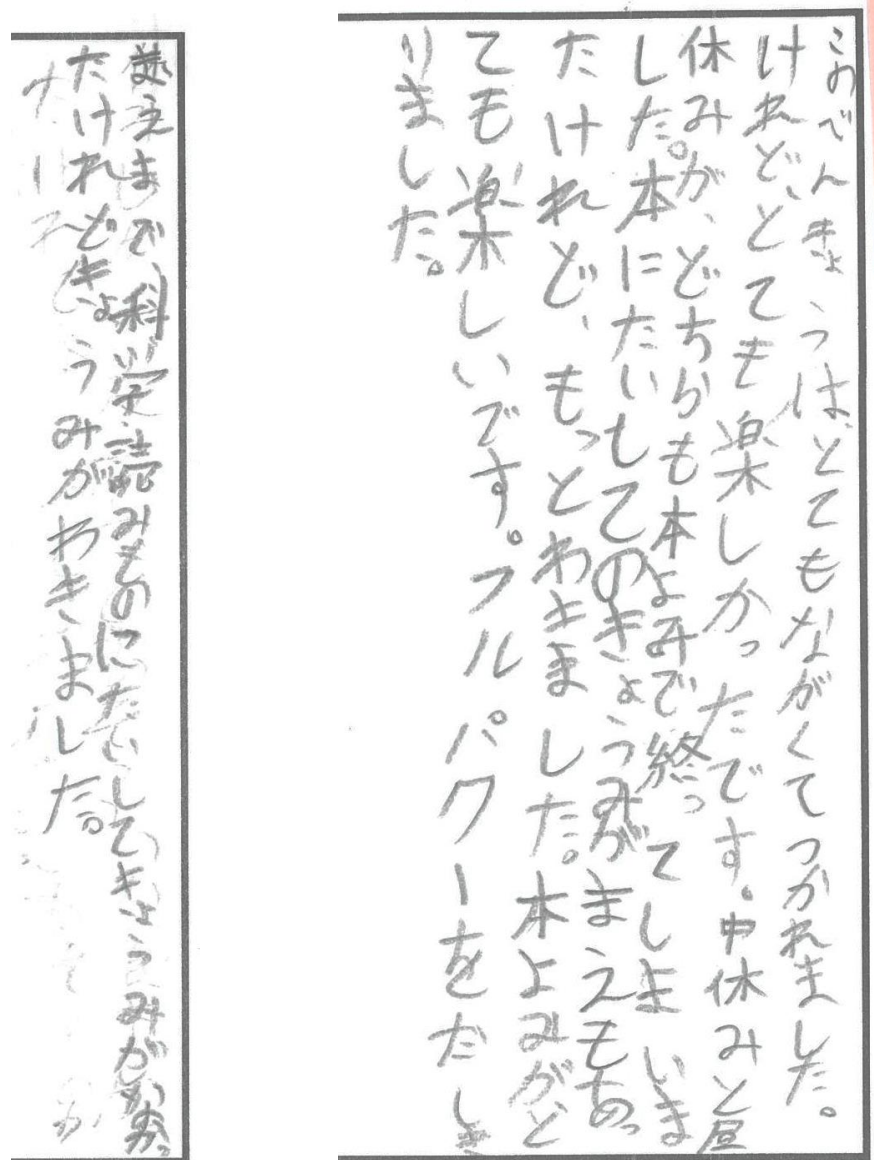 このべんきょうはとてもながくてつかれました。
けれど、とても楽しかったです。中休みと昼
休みが、どちらも本よみで終ってしまいま
した。本にたいしてのきょうみがまえもあっ
たけれど、もっとわきました。本よみがと
ても楽しいです。フルパワーをだしき
りました。
まえまで、科学読みものにたいしてきょうみがなかっ
たけれどきょうみがわきました。